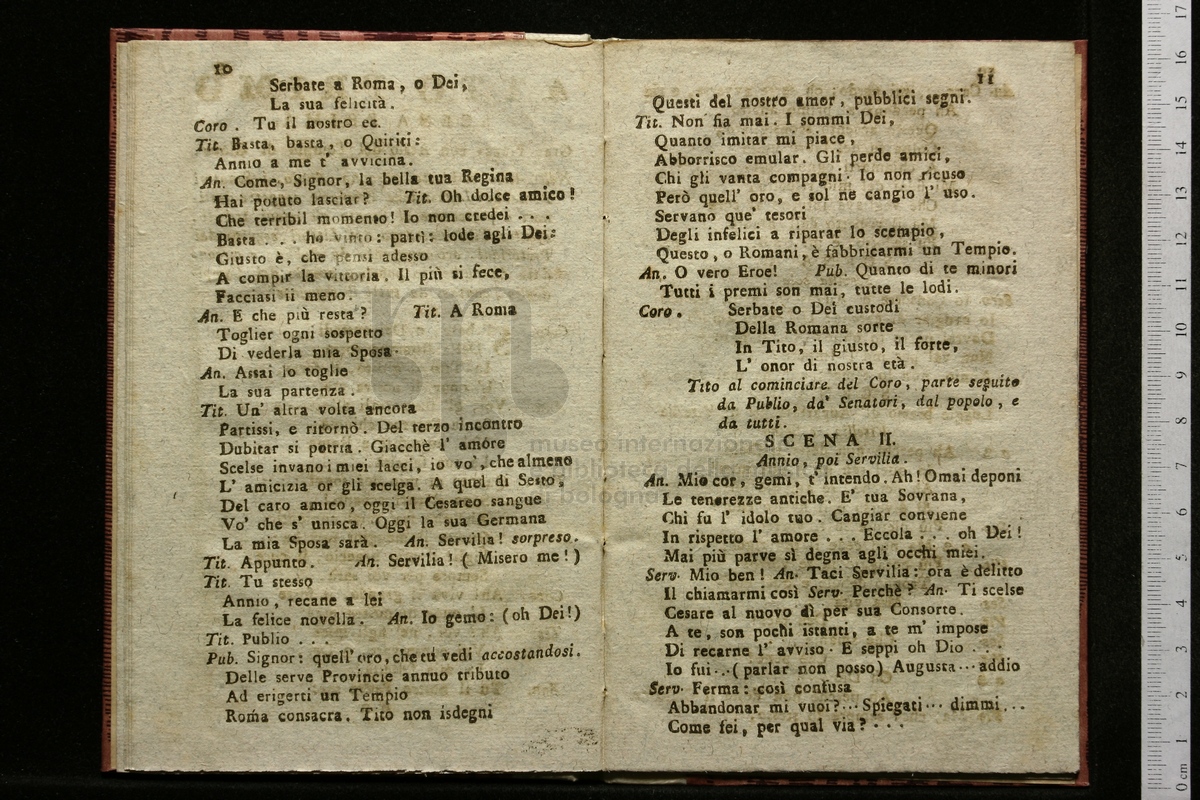 10
Serbate a Roma, o Dei,
La sua felicità.
Coro. Tu il nostro ec.
Tit. Basta, basta, o Quiriti:
Annio a me t' avvicina.
An. Come, Signor, la bella tua Regina
Hai potuto lasciar? Tit. Oh dolce amico!
Che terribil momento! Io non credei ...
Basta ... ho vinto: partì: lode agli Dei:
Giusto è, che pensi adesso
A compir la vittoria. Il più si fece,
Facciasi il meno.
An. E che più resta? Tit. A Roma
Toglier ogni sospetto
Di vederla mia Sposa.
An. Assai lo toglie
La sua partenza.
Tit. Un' altra volta ancora
Partissi, e ritornò. Del terzo incontro
Dubitar si potria. Giacchè l' amore
Scelse invano i miei lacci, io vo', che almeno
L' amicizia or gli scelga. A quel di Sesto,
Del caro amico, oggi il Cesareo sangue
Vo' che s' unisca. Oggi la sua Germana
La mia Sposa sarà. An. Servilia! sorpreso.
Tit. Appunto. An. Servilia! (Misero me!)
Tit. Tu stesso
Annio, recane a lei
La felice novella. An. Io gemo: (oh Dei!)
Tit. Publio ...
Pub. Signor: quell' oro, che tu vedi accostandosi.
Delle serve Provincie annuo tributo
Ad erigerti un Tempio
Roma consacra. Tito non isdegni
11
Questi del nostro amor, pubblici segni.
Tit. Non fia mai. I sommi Dei,
Quanto imitar mi piace,
Abborrisco emular. Gli perde amici,
Chi gli vanta compagni. Io non ricuso
Però quell' oro, e sol ne cangio l' uso.
Servano que' tesori
Degli infelici a riparar lo scempio,
Questo, o Romani, è fabbricarmi un Tempio.
An. O vero Eroe! Pub. Quanto di te minori
Tutti i premi son mai, tutte le lodi.
Coro. Serbate o Dei custodi
Della Romana sorte
In Tito, il giusto, il forte,
L' onor di nostra età.
Tito al cominciare del Coro, parte seguito
da Publio, da' Senatori, dal popolo, e
da tutti.
SCENA II.
Annio, poi Servilia.
An. Mio cor, gemi, t' intendo. Ah! Omai deponi
Le tenerezze antiche. E' tua Sovrana,
Chi fu l' idolo tuo. Cangiar conviene
In rispetto l' amore ... Eccola ... oh Dei!
Mai più parve sì degna agli occhi miei.
Serv. Mio ben! An. Taci Servilia: ora è delitto
Il chiamarmi così Serv. Perchè? An. Ti scelse
Cesare al nuovo dì per sua Consorte.
A te, son pochi istanti, a te m' impose
Di recarne l' avviso. E seppi oh Dio ...
Io fui...(parlar non posso) Augusta... addio
Serv. Ferma: così confusa
Abbandonar mi vuoi?... Spiegati... dimmi...
Come fei, per qual via?...
museo internazionale
biblioteca della
di bologna
0 cm 1 2 3 4 5 6 7 8 9 10 11 12 13 14 15 16 17